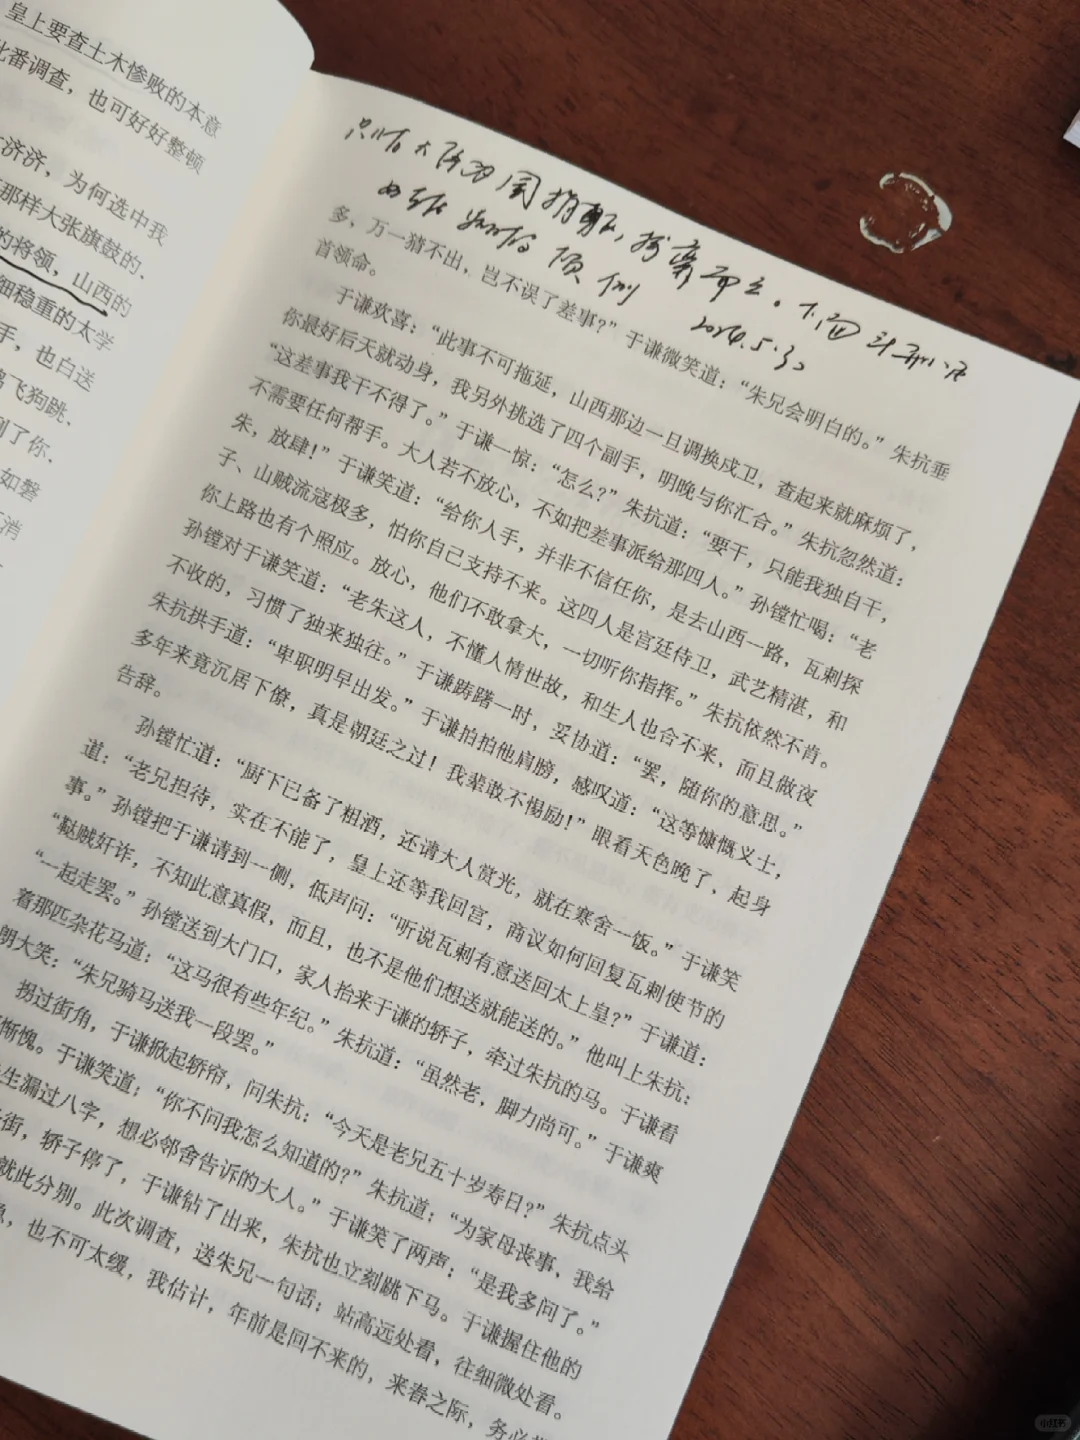 皇上要查土木惨败的本意
此番调查，也可好好整顿
济济，为何选中我
那样大张旗鼓的、
的将领，山西的
细稳重的太学
手，也白送
鸡飞狗跳、
到了你、
如磐
消
2024.5.30
多，万一猜不出，岂不误了差事？”于谦微笑道：“朱兄会明白的。”朱抗垂
首领命。
于谦欢喜：“此事不可拖延，山西那边一旦调换戍卫，查起来就麻烦了，
你最好后天就动身，我另外挑选了四个副手，明晚与你汇合。”朱抗忽然道：
“这差事我干不得了。”于谦一惊：“怎么？”朱抗道：“要干，只能我独自干，
不需要任何帮手。大人若不放心，不如把差事派给那四人。”孙镗忙喝：“老
朱，放肆！”于谦笑道：“给你人手，并非不信任你，是去山西一路，瓦剌探
子、山贼流寇极多，怕你自己支持不来。这四人是宫廷侍卫，武艺精湛，和
你上路也有个照应。放心，他们不敢拿大，一切听你指挥。”朱抗依然不肯。
孙镗对于谦笑道：“老朱这人，不懂人情世故，和生人也合不来，而且做夜
不收的，习惯了独来独往。”于谦踌躇一时，妥协道：“罢，随你的意思。”
朱抗拱手道：“卑职明早出发。”于谦拍拍他肩膀，感叹道：“这等慷慨义士，
多年来竟沉居下僚，真是朝廷之过！我辈敢不惕励！”眼看天色晚了，起身
告辞。
孙镗忙道：“厨下已备了粗酒，还请大人赏光，就在寒舍一饭。”于谦笑
道：“老兄担待，实在不能了，皇上还等我回宫，商议如何回复瓦剌使节的
事。”孙镗把于谦请到一侧，低声问：“听说瓦剌有意送回太上皇？”于谦道：
“鞑贼奸诈，不知此意真假，而且，也不是他们想送就能送的。”他叫上朱抗：
“一起走罢。”孙镗送到大门口，家人抬来于谦的轿子，牵过朱抗的马。于谦看
着那匹杂花马道：“这马很有些年纪。”朱抗道：“虽然老，脚力尚可。”于谦爽
朗大笑：“朱兄骑马送我一段罢。”
拐过街角，于谦掀起轿帘，问朱抗：“今天是老兄五十岁寿日？”朱抗点头
惭愧。于谦笑道：“你不问我怎么知道的？”朱抗道：“为家母丧事，我给
生漏过八字，想必邻舍告诉的大人。”于谦笑了两声：“是我多问了。”
街，轿子停了，于谦钻了出来，朱抗也立刻跳下马。于谦握住他的
就此分别。此次调查，送朱兄一句话：站高远处看，往细微处看。
，也不可太缓，我估计，年前是回不来的，来春之际，务必